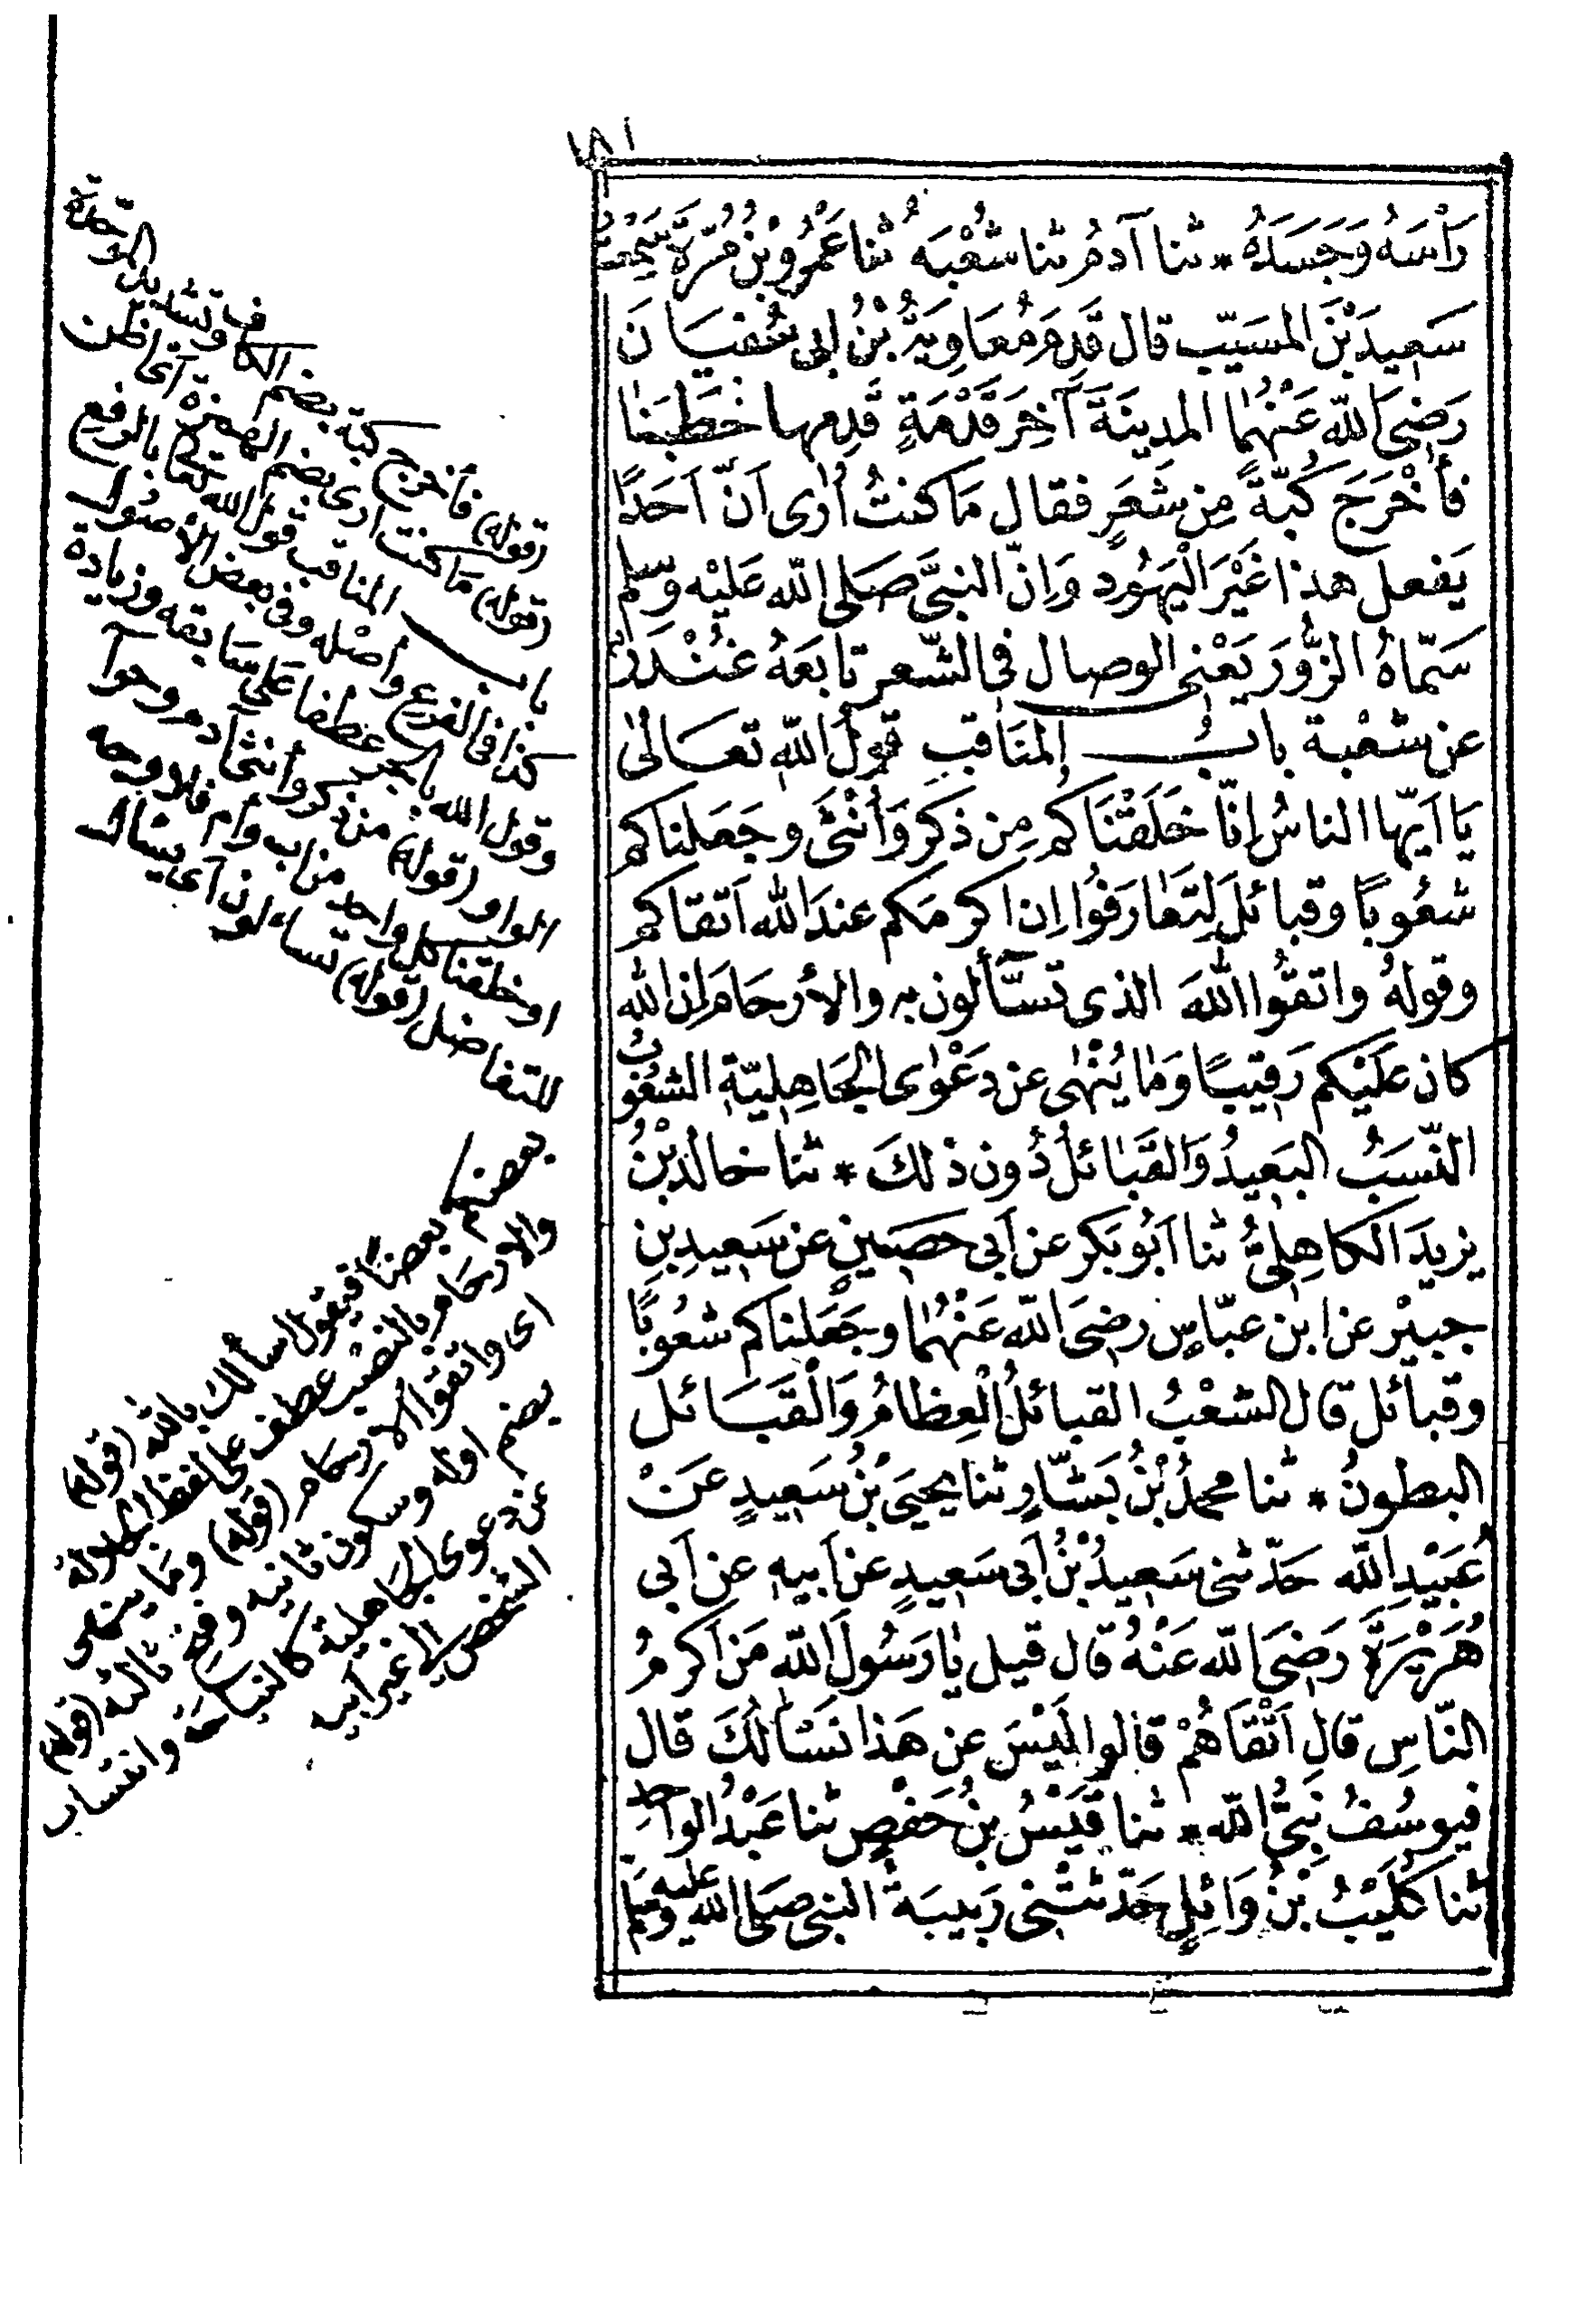 ١٨١
رَأْسَهُ وَجَسَدَهُ * ثنا آدمُ ثنا شُعْبَةُ ثنا عَمْرُو بْنُ مُرَّةَ سَمِعْتُ
سَعِيدَ بْنَ المسَيّبِ قال قَدِمَ مُعَاوِيَةُ بْنُ ابى سُفْيَانَ
رَضِىَ اللّه عَنْهُما المدِينَةَ آخِرَ قَدْمَةٍ قَدِمها خَطَبَنا
فَأَخْرَجَ كُبّةً مِن شَعَرٍ فقال مَا كنتُ أُرٰى اَنّ اَحَدًا
يَفعل هذا غَيْرَ الْيَهُود وَاِنّ النبىَّ صَلى اللّه عَليْه وَسلم
سَمّاهُ الزُّورَ يَعْنى الوصال فى الشّعر تابَعَهُ غُنْدَرٌ
عن شعْبة باب المنَاقبِ قولُ اللّه تعَالىٰ
يَا اَيّها الناسُ إنّا خَلَقْنَاكم مِن ذكَرٍ وَأُنْثَى وجَعَلناكم
شعُوبًا وقبائلَ لِتَعَارَفُوا اِن اكرمَكم عندَ اللّه اَتقاكم
وقولهُ واتقُوا اللّهَ الذى تسّآءَلون به والأرحَامَ إن اللّه
كان عَلَيْكم رَقيبًا وَمَا يُنْهٰى عن دَعْوٰى الجَاهِليّةِ الشعُوبُ
النّسَبُ البَعِيدُ وَالقَبَائلُ دُون ذلكَ * ثنا خالدُ بْنُ
يزيدَ الكاهِلىُّ ثنا اَبُو بَكر عن اَبى حصَينٍ عن سَعِيدِ بنِ
جبيْر عن ابن عبّاسٍ رضِىَ اللّه عَنْهُما وجَعَلناكم شعُوبًا
وقبائل قال الشعْبُ القبائلُ الْعِظامُ وَالْقَبَائل
البطونُ * ثنا محمدُ بْنُ بَشّارٍ ثنا يحيَى بْنُ سَعِيدٍ عَنْ
عُبَيْدِ اللّه حَدّثنى سَعيدُ بْنُ اَبى سَعيدٍ عن اَبيهِ عن اَبى
هُرَيْرَةَ رَضِىَ اللّه عَنْهُ قال قيل يا رَسُولَ اللّه مَن اَكرمُ
النّاسِ قال اَتْقَاهُمْ قالوا لَيْسَ عن هَذا نَسْألُكَ قال
فيوسُفُ نَبِىُّ اللّه * ثنا قَيْسُ بنُ حَفصٍ ثنا عَبْدُ الواحِدِ
ثنا كُلَيْبُ بْنُ وَائِلٍ حَدّثتْنى رَبيبَةُ النبى صَلى اللّه عليه وسَلم
(قوله) فأخرج كبة بضم الكاف وتشديد الموحدة
(قوله) مَا كنت ارى بضم الهمزة اى اظن
باب المناقب قول اللّه تعالى بالرفع
كذا فى الفرع واصْله وفى بعض الأصول
وقول اللّه بالجر عطفا على سَابقه وزيادة
الواو (قوله) من ذكر وانثى آدم وحوآ
او خلقنا كل واحد من اب وام فلا وجه
للتفاضل (قوله) تساءلون اى يسأل
بعضكم بعضًا فيقول اسألك باللّه (قوله)
والارحام بالنصب عطف على لفظ الجلالة
اى واتقوا الارحام (قوله) ومَا ينهى
بضم اوله وسكون ثانيه وفتح ثالثه (قوله)
عن دعوى الجاهلية كالنياحة وانتساب
الشخص الى غير ابيه